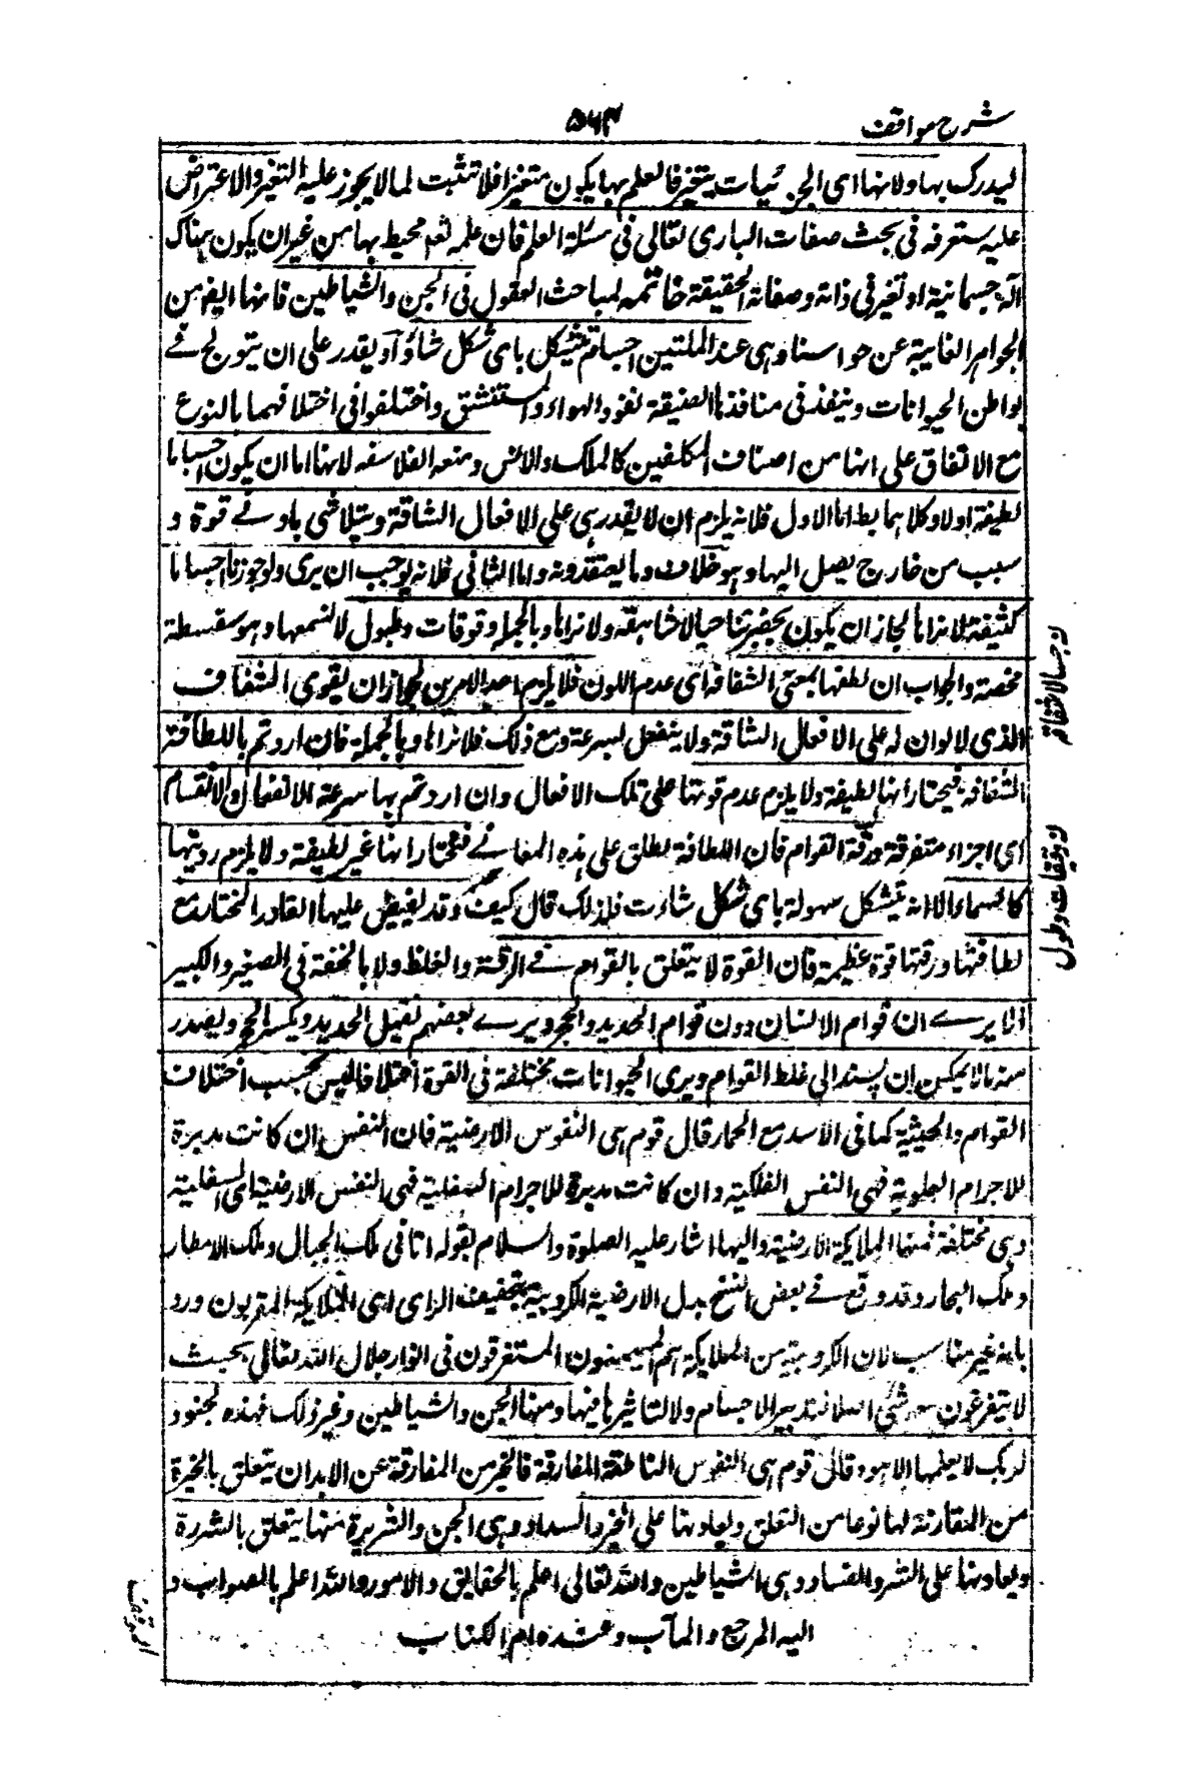 شرح مواقف
۵۶۳
ليدرك بها ولانها اى الجزئيات يتغير فالعلم بها يكون متغيرا فلا تثبت لما لا يجوز عليه التغير والاعتراض
عليه ستعرفه فى بحث صفات البارى تعالى فى مسئلة العلم فان علمه تعم محيط بها من غير ان يكون هناك
آلة جسمانية او تغير فى ذاته وصفاته الحقيقة خاتمه لمباحث العقول فى الجن والشياطين فانها ايضا من
الجواهر الغايبة عن حواسنا وهى عند الملتين اجسام تتشكل باى شكل شاؤا ويقدر على ان يتولج فے
بواطن الحيوانات وينفذ فى منافذها الضيقة نفوذ الهواء المستنشق واختلفوا فى اختلافهما بالنوع
مع الاتفاق على انها من اصناف المكلفين كالملك والانس ومنعه الفلاسفه لانها اما ان يكون اجساما
لطيفة او لا وكلاهما بط اما الاول فلانه يلزم ان لا يقدر هى على الافعال الشاقة ويتلاشى بادنے قوة و
سبب من خارج يصل اليها وهو خلاف ما يعتقدونه واما الثانى فلانه يوجب ان يرى ولو جوزنا اجساما
كثيفة لا نراها لجاز ان يكون بحضرتنا جبالا شاهقة ولا نراها وبالجمله وقوقات وطبول لا نسمعها وهو سفسطة
محضة والجواب ان لطفها بمعنى الشفافة اى عدم اللون فلا يلزم احد الامرين لجواز ان يقوى الشفاف
الذى لا لون له على الافعال الشاقة ولا ينفعل بسرعة ومع ذلك فلا نراها وبالجملة فان اردتم باللطافة
الشفافة فيختار انها لطيفة ولا يلزم عدم قوتها على تلك الافعال وان اردتم بها سرعة الانفعال والانقسام
اى اجزاء متفرقة ورقة القوام فان اللطافة تطلق على هذه المعانے فنختار انها غير لطيفة ولا يلزم رويتها
كالسماء الا انه يتشكل بسهولة باى شكل شاءت فلذلك قال كيف وقد يفيض عليها القادر المختار مع
لطافتها ورقتها قوة عظيمة فان القوة لا يتعلق بالقوام فے الرقة والغلظ ولا بالخفة فى الصغير والكبير
الا يرے ان قوام الانسان دون قوام الحديد والحجر ويرے بعضهم يفتل الحديد ويكسر الحجر ويصدر
منه ما لا يمكن ان يسند الى غلظ القوام ويرى الحيوانات مختلفة فى القوة اختلافا ليس بحسب اختلاف
القوام والجثية كما فى الاسد مع الحمار قال قوم هى النفوس الارضية فان النفس ان كانت مدبرة
للاجرام العلوية فهى النفس الفلكية وان كانت مدبرة للاجرام السفلية فهى النفس الارضية اى السفلية
وهى مختلفة فمنها الملايكة الارضية واليها اشار عليه الصلوة والسلام بقوله اتانى ملك الجبال وملك الامطار
وملك البحار وقد وقع فے بعض النسخ بدل الارضية الكروبية بتخفيف الراى اى الملايكة المقربون ورد
بانه غير مناسب لان الكروبية من الملايكة هم المهيمنون المستغرقون فى انوار جلال الله تعالى بحيث
لا يتفرغون معه شئ اصلا لتدبير الاجسام ولا لتاثيرها فيها ومنها الجن والشياطين وغير ذلك فهذه لجنود
لربك لا يعلمها الا هو وقال قوم هى النفوس الناطقة المفارقة فالخير من المفارقة عن الابدان يتعلق بالخيرة
من المقارنة لها نوعا من التعلق ويعاونها على الخير والسداد وهى الجن والشريرة منها يتعلق بالشريرة
ويعاونها على الشر والفساد وهى الشياطين والله تعالى اعلم بالحقايق والامور والله اعلم بالصواب و
اليه المرجع والمآب وعنده ام الكتاب